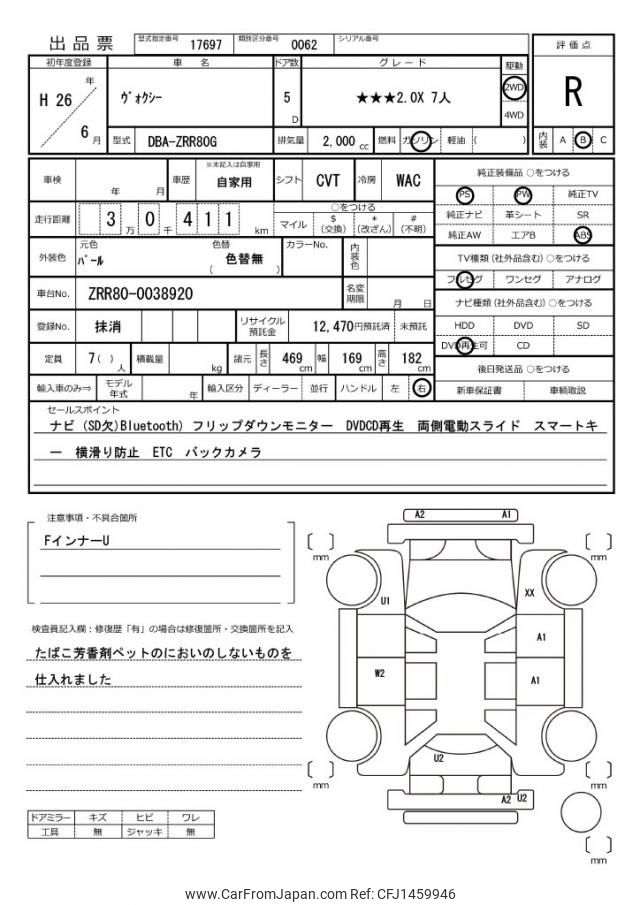 出品票 型式指定番号 17697 類別区分番号 0062 シリアル番号
評価点
R
内装 A B C
初年度登録 車名 ドア数 グレード 駆動
H 26 年 6 月 ヴォクシー 5 D ★★★2.0X 7人 2WD 4WD
型式 DBA-ZRR80G 排気量 2,000 cc 燃料 ガソリン 軽油 ( )
車検 年 月 車歴 ※未記入は自家用 自家用 シフト CVT 冷房 WAC
走行距離 3 万 0 千 4 1 1 km
○をつける
マイル $ (交換) * (改ざん) # (不明)
外装色 元色 パール 色替 色替無 ( ) カラーNo. 内装色
車台No. ZRR80-0038920 名変期限 月 日
登録No. 抹消 リサイクル預託金 12,470円預託済 未預託
定員 7( ) 人 積載量 kg 諸元 長さ 469 cm 幅 169 cm 高さ 182 cm
輸入車のみ⇒ モデル年式 年 輸入区分 ディーラー 並行 ハンドル 左 右
純正装備品 ○をつける
PS PW 純正TV
純正ナビ 革シート SR
純正AW エアB ABS
TV種類 (社外品含む) ○をつける
フルセグ ワンセグ アナログ
ナビ種類 (社外品含む) ○をつける
HDD DVD SD
DVD再生可 CD
後日発送品 ○をつける
新車保証書 車輌取説
セールスポイント
ナビ (SD欠)Bluetooth) フリップダウンモニター DVDCD再生 両側電動スライド スマートキ
ー 横滑り防止 ETC バックカメラ
注意事項・不具合箇所
FインナーU
検査員記入欄：修復歴「有」の場合は修復箇所・交換箇所を記入
たばこ芳香剤ペットのにおいのしないものを
仕入れました
ドアミラー キズ ヒビ ワレ
工具 無 ジャッキ 無
A2 A1
[ ] mm [ ] mm
U1 XX
A1
W2 A1
U2
[ ] mm [ ] mm
A2 U2
[ ] mm
www.CarFromJapan.com Ref: CFJ1459946